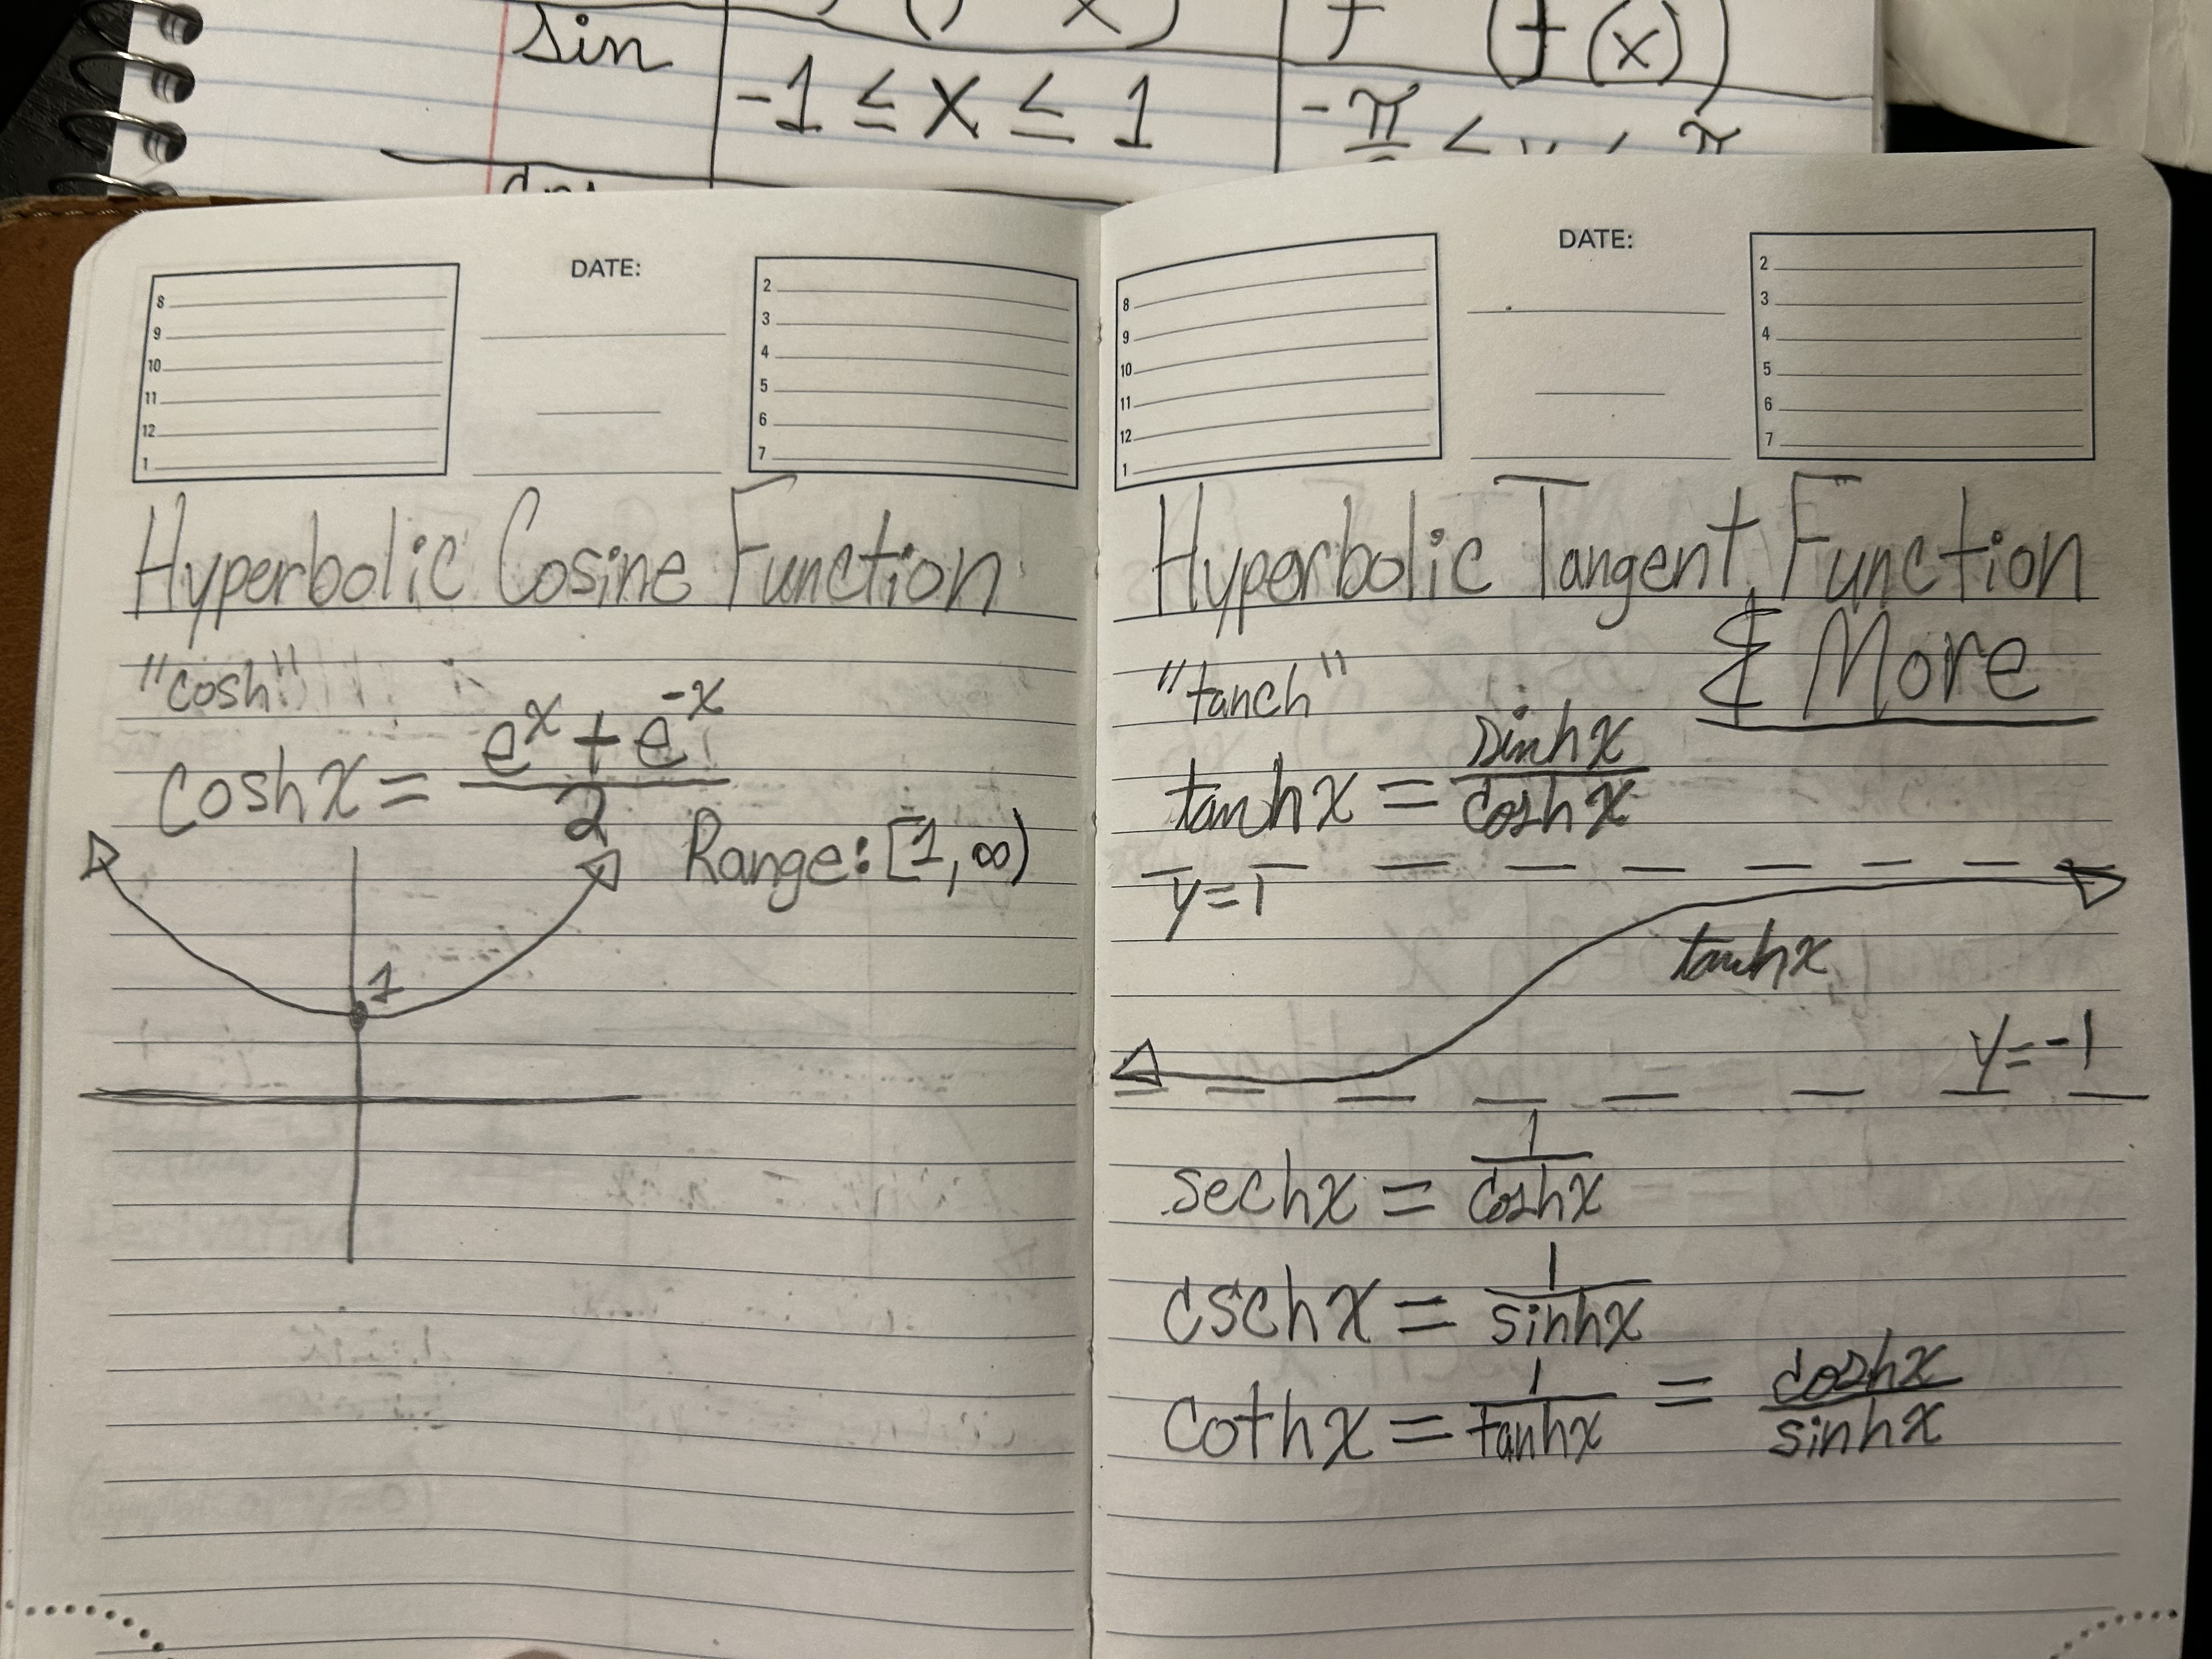 DATE:
8
9
10
11
12
1
2
3
4
5
6
7
Hyperbolic Cosine Function
"cosh"
Cosh x = (e^x + e^-x)/2
Range: [1, ∞)
1
DATE:
8
9
10
11
12
1
2
3
4
5
6
7
Hyperbolic Tangent Function
"tanch"
& More
tanh x = sinh x / cosh x
y=1
tanh x
y=-1
sech x = 1/cosh x
csch x = 1/sinh x
coth x = 1/tanh x = cosh x / sinh x
sin
-1 ≤ x ≤ 1